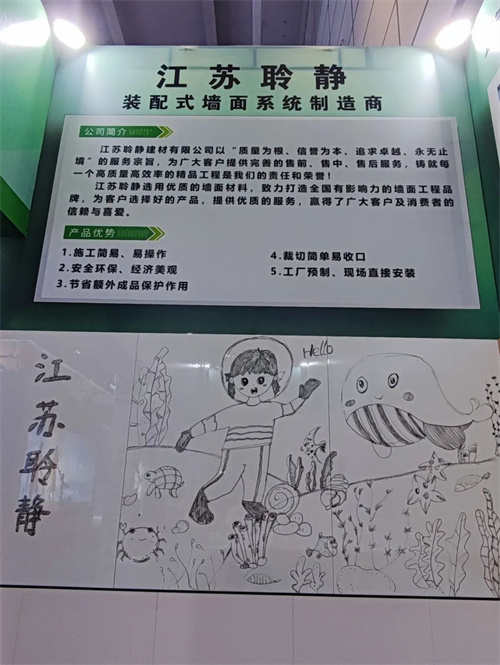 江苏聆静
装配式墙面系统制造商
公司简介
江苏聆静建材有限公司以“质量为根、信誉为本、追求卓越、永无止
境”的服务宗旨，为广大客户提供完善的售前、售中、售后服务，铸就每
一个高质量高效率的精品工程是我们的责任和荣誉！
江苏聆静选用优质的墙面材料，致力打造全国有影响力的墙面工程品
牌，为客户选择好的产品，提供优质的服务，赢得了广大客户及消费者的
信赖与喜爱。
产品优势
1.施工简易、易操作
2.安全环保、经济美观
3.节省额外成品保护作用
4.裁切简单易收口
5.工厂预制、现场直接安装
Hello
江苏聆静